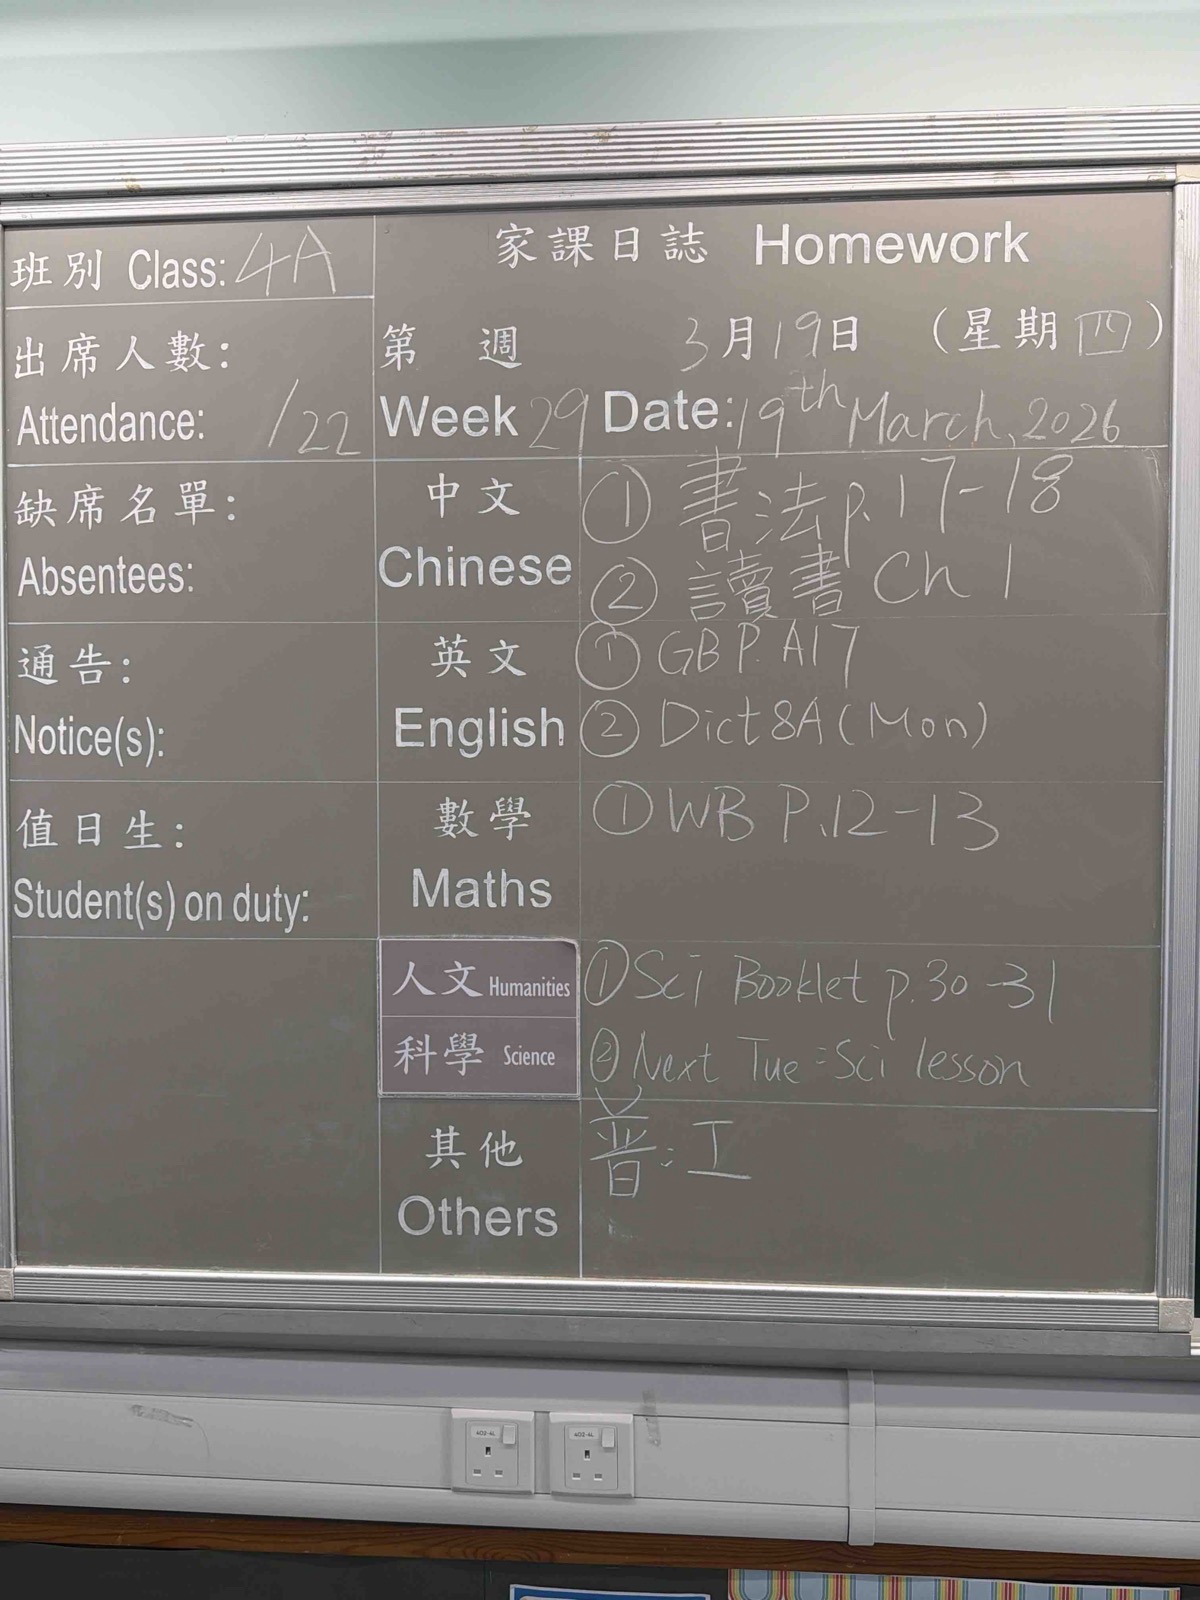 班別 Class: 4A
家課日誌 Homework
出席人數:
Attendance: /22
第 週 3月19日 (星期四)
Week 29 Date: 19th March, 2026
缺席名單:
Absentees:
中文
Chinese
① 書法 p.17-18
② 讀書 Ch 1
通告:
Notice(s):
英文
English
① GB P. A17
② Dict 8A (Mon)
值日生:
Student(s) on duty:
數學
Maths
① WB P.12-13
人文 Humanities
科學 Science
① Sci Booklet p.30-31
② Next Tue: Sci lesson
其他
Others
普:工